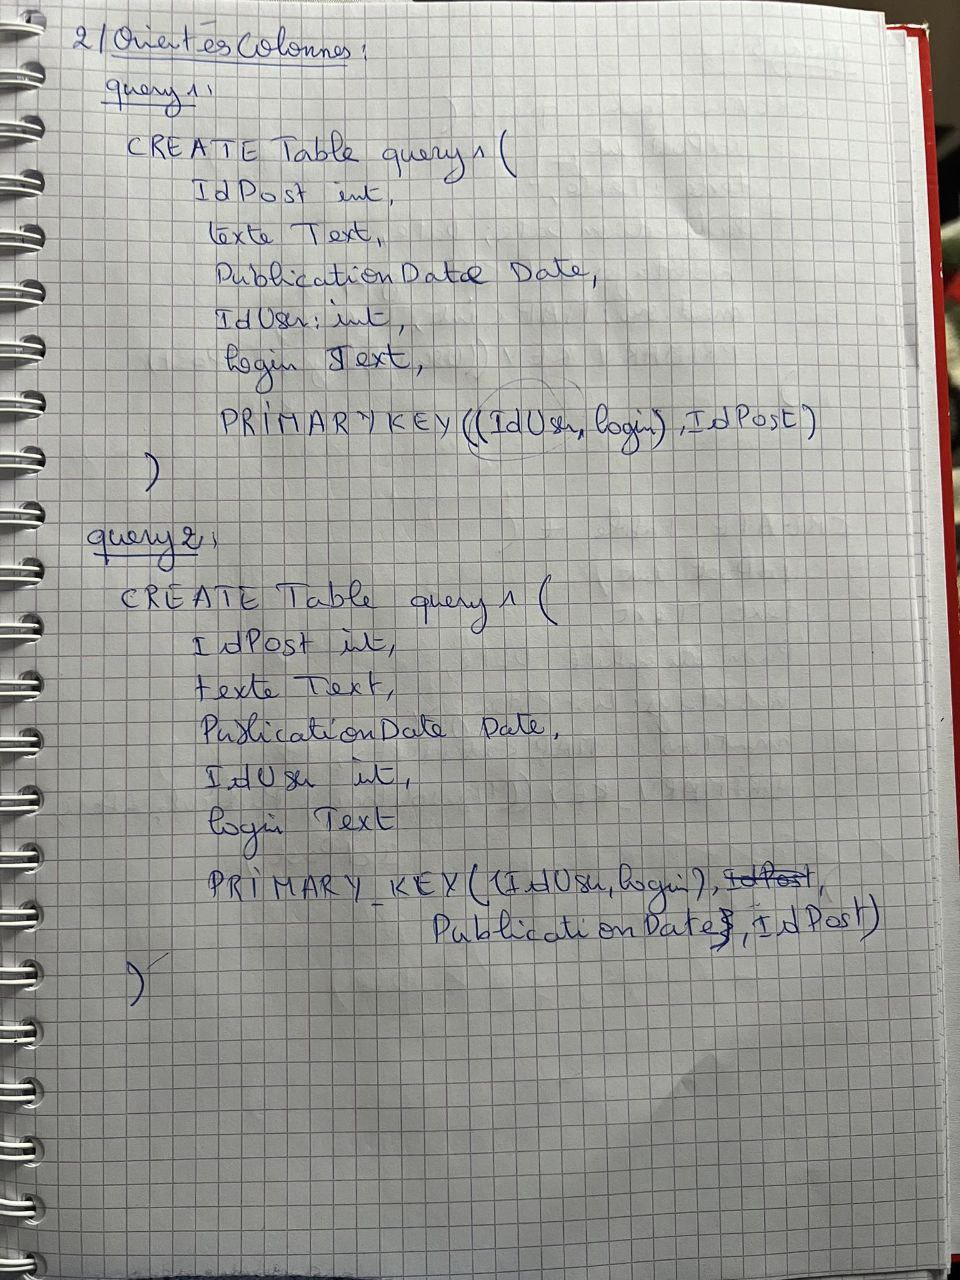 2/ Orientés Colonnes:
query 1:
CREATE Table query 1 (
IdPost int,
texte Text,
PublicationDate Date,
IdUser: int,
login Text,
PRIMARY KEY((IdUser, login), IdPost)
)
query 2:
CREATE Table query 1 (
IdPost int,
texte Text,
PublicationDate Date,
IdUser int,
login Text
PRIMARY_KEY((IdUser, login), IdPost,
PublicationDate, IdPost)
)